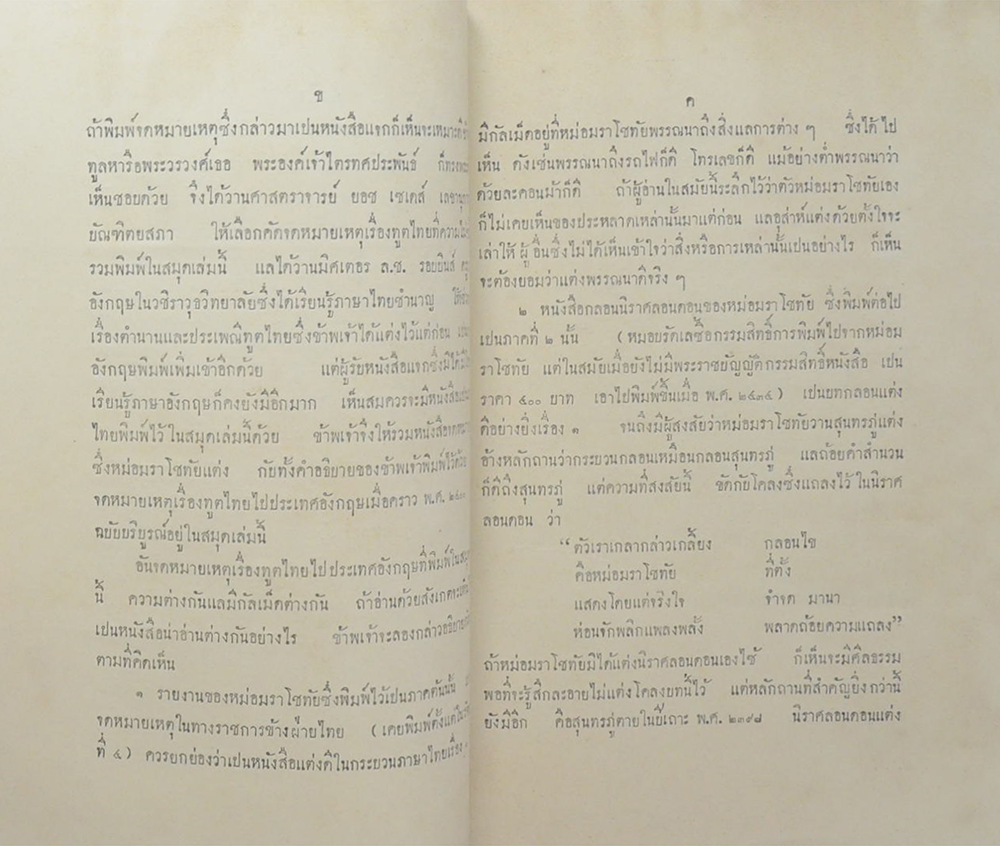 ข
ถ้าพิมพ์จดหมายเหตุซึ่งกล่าวมาเปนหนังสือแจกก็เห็นจะเหมาะดี
ทูลหารือพระวรวงศ์เธอ พระองค์เจ้าไตรทศประพันธ์ ก็ทรง
เห็นชอบด้วย จึงได้วานศาสตราจารย์ ยอช เซเดส์
บัณฑิตยสภา ให้เลือกคัดจดหมายเหตุเรื่องทูตไทยที่ความ
รวมพิมพ์ในสมุดเล่มนี้ แลได้วานมิศเตอร ล.ช. รอยยินส์ ครู
อังกฤษในวชิราวุธวิทยาลัยซึ่งได้เรียนรู้ภาษาไทยชำนาญ ให้
เรื่องตำนานและประเพณีทูตไทยซึ่งข้าพเจ้าได้แต่งไว้แต่ก่อน
อังกฤษพิมพ์เพิ่มเข้าอีกด้วย แต่ผู้รับหนังสือแจกซึ่งมิได้
เรียนรู้ภาษาอังกฤษก็คงยังมีอีกมาก เห็นสมควรจะมีหนังสือ
ไทยพิมพ์ไว้ในสมุดเล่มนี้ด้วย ข้าพเจ้าจึงให้รวมหนังสือ
ซึ่งหม่อมราโชทัยแต่ง กับทั้งคำอธิบายของข้าพเจ้าพิมพ์ไว้ด้วย
จดหมายเหตุเรื่องทูตไทยไปประเทศอังกฤษเมื่อคราว พ.ศ. ๒๔๐๐
ฉบับบริบูรณ์อยู่ในสมุดเล่มนี้
อันจดหมายเหตุเรื่องทูตไทยไปประเทศอังกฤษที่พิมพ์ในสมุด
นี้ ความต่างกันแลมีกัลเม็ดต่างกัน ถ้าอ่านด้วยสังเกตจะเห็น
เปนหนังสือน่าอ่านต่างกันอย่างไร ข้าพเจ้าจะลองกล่าวอธิบาย
ตามที่คิดเห็น
๑ รายงานของหม่อมราโชทัยซึ่งพิมพ์ไว้เปนภาคต้นนั้น
จดหมายเหตุในทางราชการข้างฝ่ายไทย (เคยพิมพ์ตั้งแต่ใน
ที่ ๔) ควรยกย่องว่าเปนหนังสือแต่งดีในกระบวนภาษาไทยเรื่อง ๑
ค
มีกัลเม็ดอยู่ที่หม่อมราโชทัยพรรณนาถึงสิ่งแลการต่าง ๆ ซึ่งได้ไป
เห็น ดังเช่นพรรณนาถึงรถไฟก็ดี โทรเลขก็ดี แม้อย่างต่ำพรรณนาว่า
ด้วยละคอนม้าก็ดี ถ้าผู้อ่านในสมัยนี้ระลึกไว้ว่าตัวหม่อมราโชทัยเอง
ก็ไม่เคยเห็นของประหลาดเหล่านั้นมาแต่ก่อน แลอุส่าห์แต่งด้วยตั้งใจจะ
เล่าให้ผู้อื่นซึ่งไม่ได้เห็นเข้าใจว่าสิ่งหรือการเหล่านั้นเปนอย่างไร ก็เห็น
จะต้องยอมว่าแต่งพรรณนาดีจริง ๆ
๒ หนังสือกลอนนิราศลอนดอนของหม่อมราโชทัย ซึ่งพิมพ์ต่อไป
เปนภาคที่ ๒ นั้น (หมอบรัดเลซื้อกรรมสิทธิ์การพิมพ์ไปจากหม่อม
ราโชทัย แต่ในสมัยเมื่อยังไม่มีพระราชบัญญัติกรรมสิทธิ์หนังสือ เปน
ราคา ๔๐๐ บาท เอาไปพิมพ์ขึ้นเมื่อ พ.ศ. ๒๔๓๔) เปนบทกลอนแต่ง
ดีอย่างยิ่งเรื่อง ๑ จนถึงมีผู้สงสัยว่าหม่อมราโชทัยวานสุนทรภู่แต่ง
อ้างหลักถานว่ากระบวนกลอนเหมือนกลอนสุนทรภู่ แลถ้อยคำสำนวน
ก็ดีถึงสุนทรภู่ แต่ความที่สงสัยนี้ ขัดกับโคลงซึ่งแถลงไว้ในนิราศ
ลอนดอน ว่า
“ตัวเราเกลากล่าวเกลี้ยง กลอนไข
คือหม่อมราโชทัย ที่ตั้ง
แสดงโดยแต่จริงใจ จำจด มานา
ห่อนจักพลิกแพลงพลั้ง พลาดถ้อยความแถลง”
ถ้าหม่อมราโชทัยมิได้แต่งนิราศลอนดอนเองไซ้ ก็เห็นจะมีศีลธรรม
พอที่จะรู้สึกละอายไม่แต่งโคลงบทนี้ไว้ แต่หลักถานที่สำคัญยิ่งกว่านี้
ยังมีอีก คือสุนทรภู่ตายในปีเถาะ พ.ศ. ๒๓๙๘ นิราศลอนดอนแต่ง